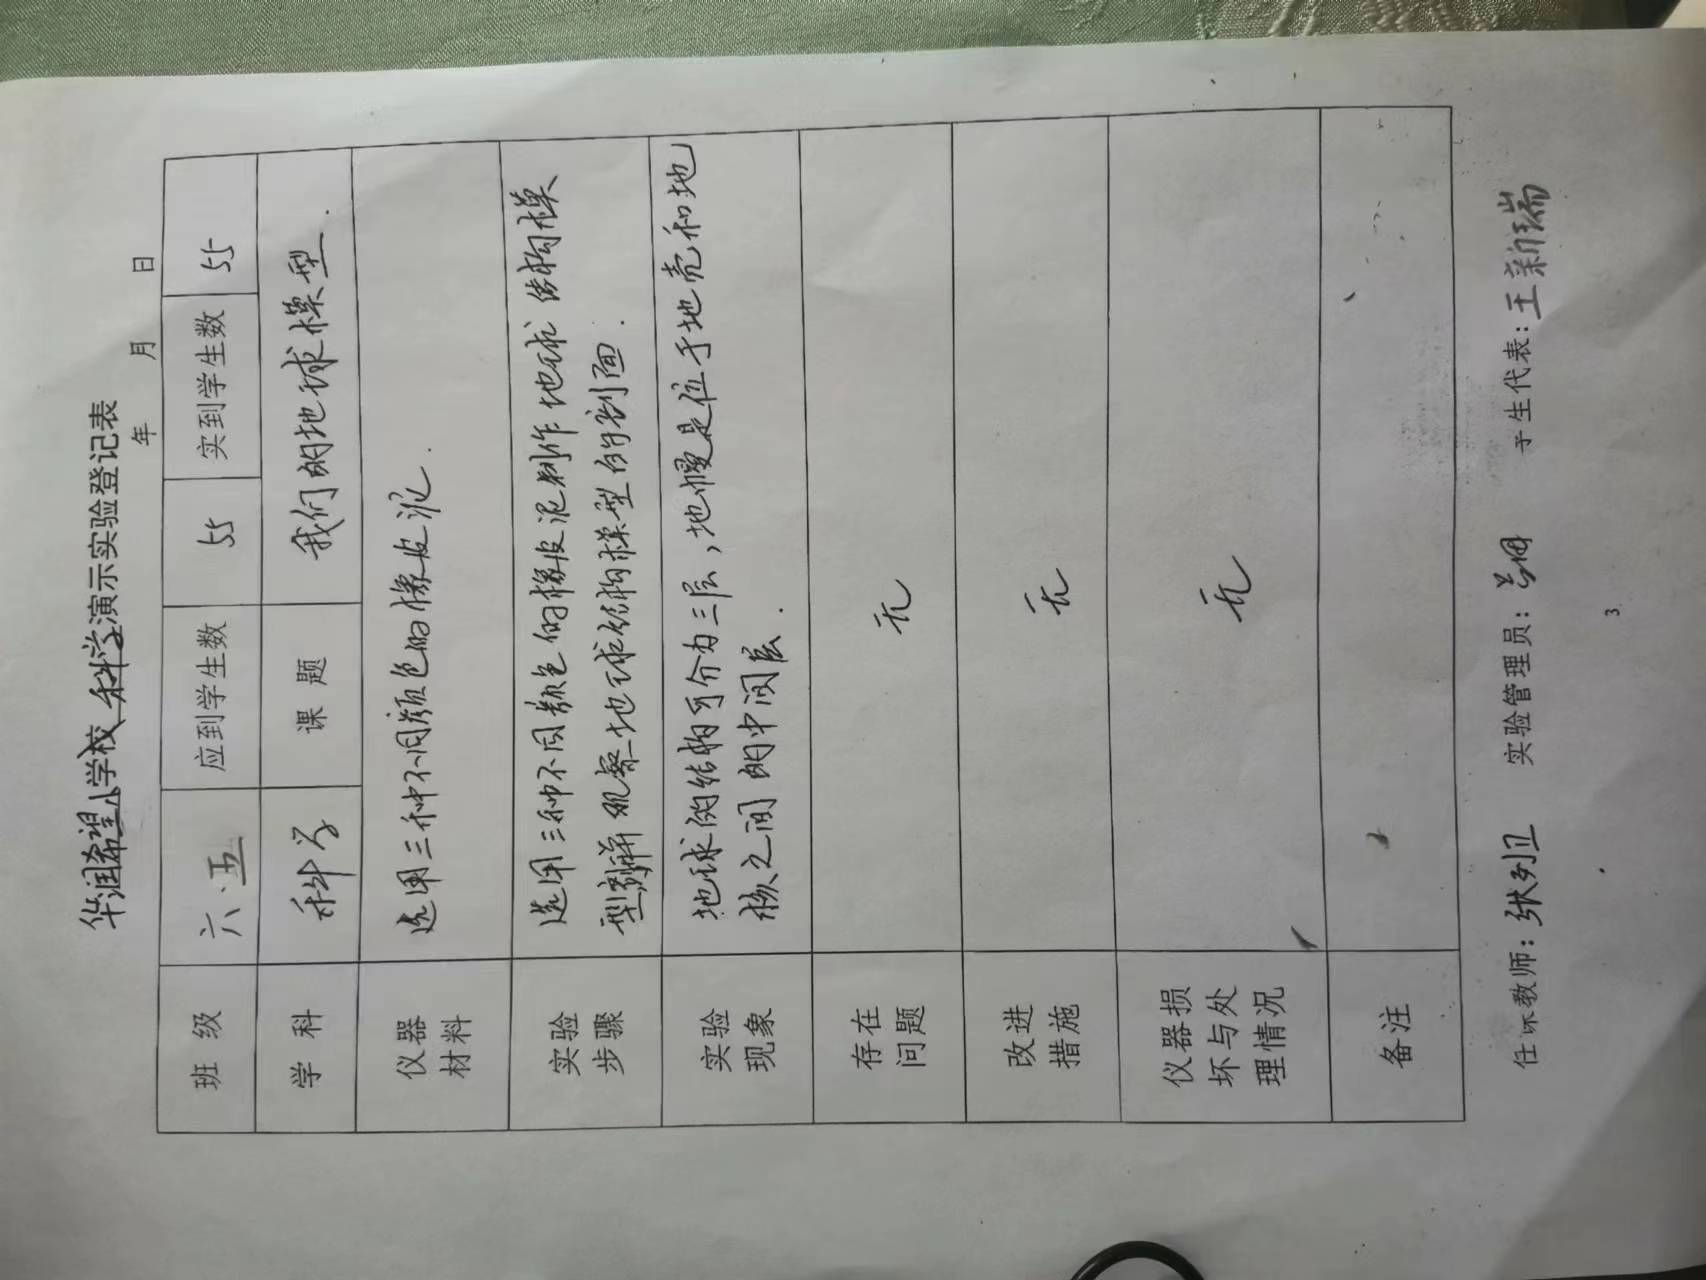 华润希望小学校 科学演示实验登记表
年 月 日
班 级 六.五 应到学生数 55 实到学生数 55
学 科 科学 课 题 我们的地球模型.
仪器
材料
选用三种不同颜色的橡皮泥.
实验
步骤
选用三种不同颜色的橡皮泥制作地球结构模
型剖解观察地球结构模型的剖面.
实验
现象
地球的结构可分为三层,地幔是位于地壳和地
核之间的中间层.
存在
问题
无
改进
措施
无
仪器损
坏与处
理情况
无
备注
任课教师: 张列卫 实验管理员: 学生代表: 王新瑞
3